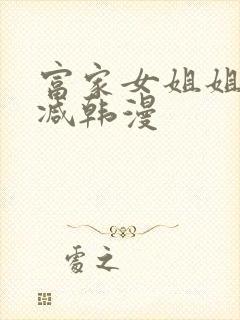 富家女姐姐
减韩漫
霉之